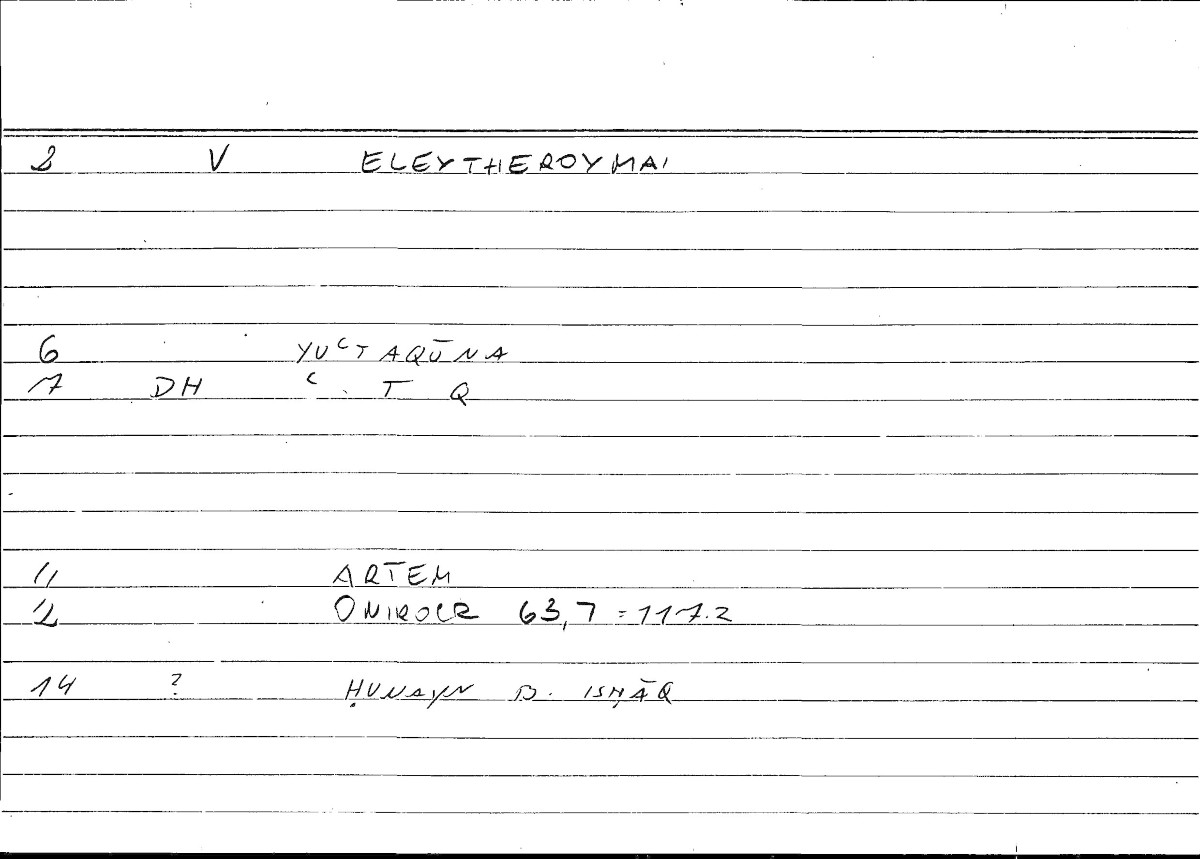 2 V ELEYTHEROYMAI
6 YUʿTAQŪNA
7 DH ʿ . T Q
11 ARTEM
12 ONIROCR 63,7 = 117.2
14 ? ḤUNAYN B. ISḤĀQ